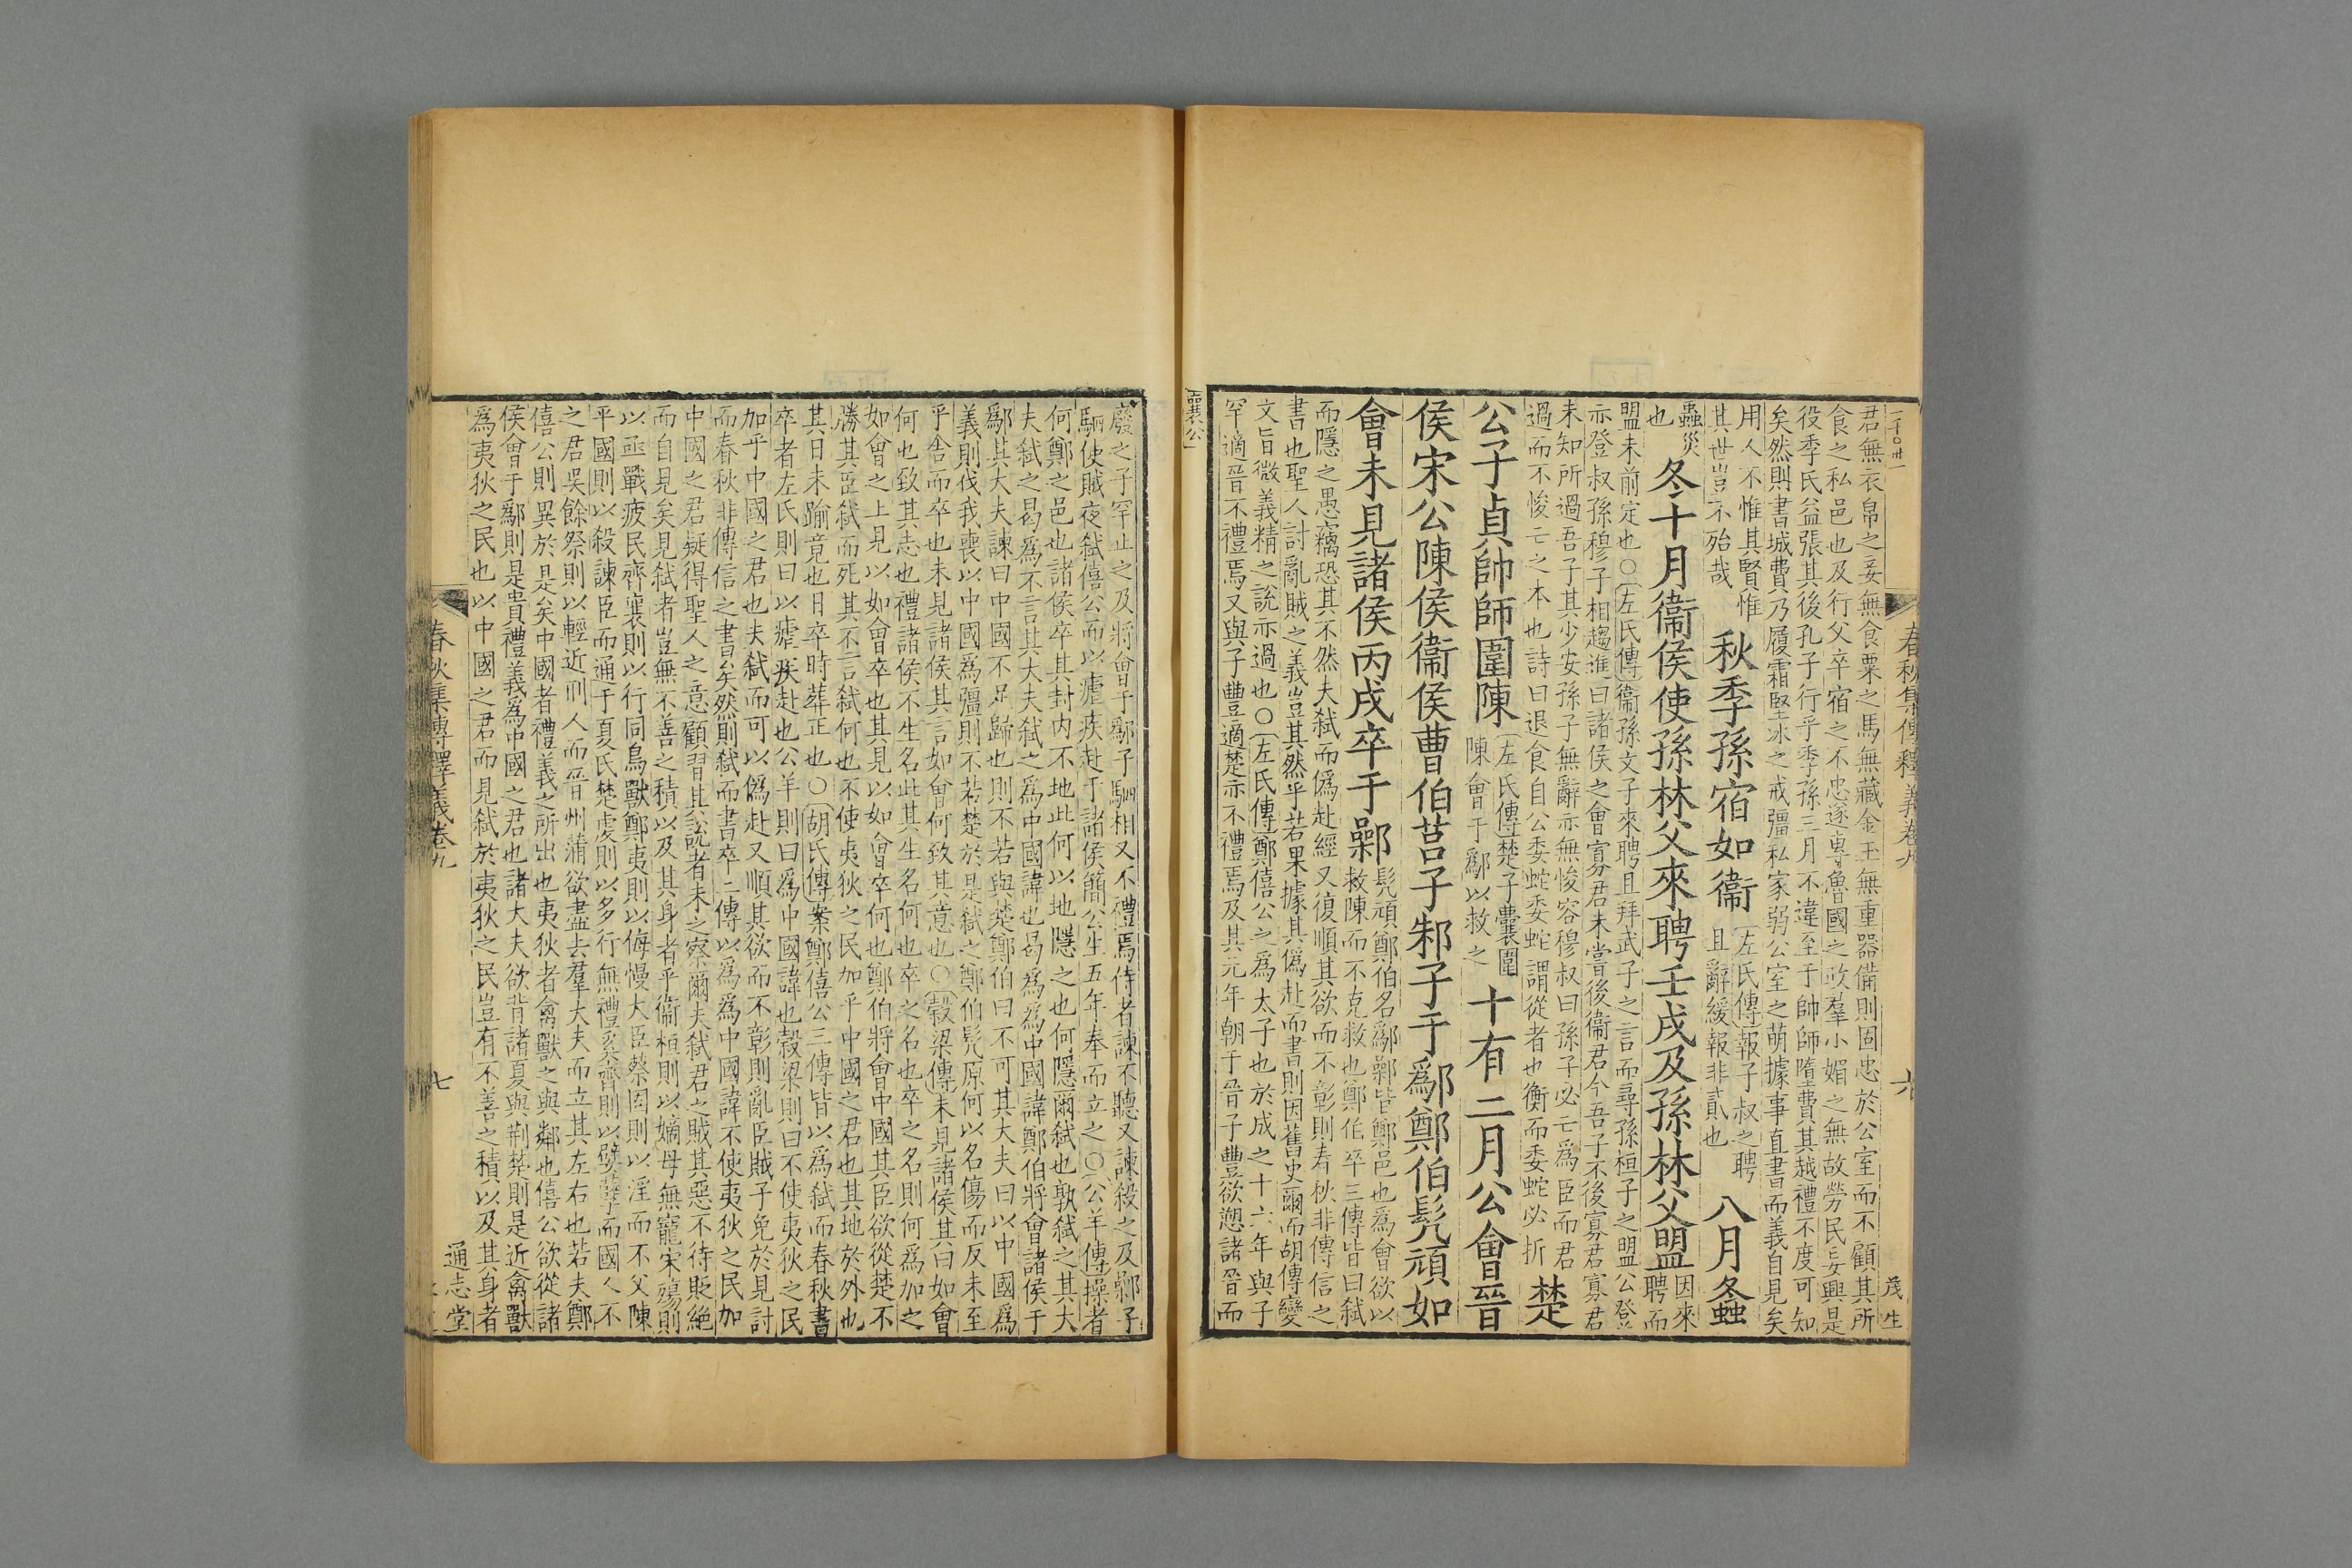 春秋集傳釋義卷九
六
茂生
君無衣帛之妾無食粟之馬無藏金玉無重器備則固忠於公室而不顧其所
食之私邑也及行父卒宿之不忠遂專魯國之政羣小媚之無故勞民妄興是
役季氏益張其後孔子行乎季孫三月不違至于帥師墮費其越禮不度可知
矣然則書城費乃履霜堅冰之戒彊私家弱公室之萌據事直書而義自見矣
用人不惟其賢惟
其世豈不殆哉
秋季孫宿如衞
左氏傳報子叔之聘
且辭緩報非貳也
八月螽
蟲災
也
冬十月衞侯使孫林父來聘壬戌及孫林父盟
因來
聘而
盟未前定也〇左氏傳衞孫文子來聘且拜武子之言而尋孫桓子之盟公登
亦登叔孫穆子相趨進曰諸侯之會寡君未嘗後衞君今吾子不後寡君寡君
未知所過吾子其少安孫子無辭亦無悛容穆叔曰孫子必亡爲臣而君
過而不悛亡之本也詩曰退食自公委蛇委蛇謂從者也衡而委蛇必折
楚
公子貞帥師圍陳
左氏傳楚子囊圍
陳會于鄬以救之
十有二月公會晉
侯宋公陳侯衞侯曹伯莒子邾子于鄬鄭伯髠頑如
會未見諸侯丙戌卒于鄵
髠頑鄭伯名鄬鄵皆鄭邑也爲會欲以
救陳而不克救也鄭伯卒三傳皆曰弑
而隱之愚竊恐其不然夫弑而僞赴經又復順其欲而不彰則春秋非傳信之
書也聖人討亂賊之義豈其然乎若果據其僞赴而書則因舊史爾而胡傳變
文旨微義精之說亦過也〇左氏傳鄭僖公之爲太子也於成之十六年與子
罕適晉不禮焉又與子豐適楚亦不禮焉及其元年朝于晉子豐欲愬諸晉而
襄公
廢之子罕止之及將會于鄬子駟相又不禮焉侍者諫不聽又諫殺之及鄵子
駟使賊夜弑僖公而以瘧疾赴于諸侯簡公生五年奉而立之〇公羊傳操者
何鄭之邑也諸侯卒其封内不地此何以地隱之也何隱爾弑也孰弑之其大
夫弑之曷爲不言其大夫弑之爲中國諱也曷爲爲中國諱鄭伯將會諸侯于
鄬其大夫諫曰中國不足歸也則不若與楚鄭伯曰不可其大夫曰以中國爲
義則伐我喪以中國爲彊則不若楚於是弑之鄭伯髠原何以名傷而反未至
乎舍而卒也未見諸侯其言如會何致其意也〇穀梁傳未見諸侯其曰如會
何也致其志也禮諸侯不生名此其生名何也卒之名也卒之名則何爲加之
如會之上見以如會卒也其見以如會卒何也鄭伯將會中國其臣欲從楚不
勝其臣弑而死其不言弑何也不使夷狄之民加乎中國之君也其地於外也
其日未踰竟也日卒時葬正也〇胡氏傳案鄭僖公三傳皆以爲弑而春秋書
卒者左氏則曰以瘧疾赴也公羊則曰爲中國諱也穀梁則曰不使夷狄之民
加乎中國之君也夫弑而可以僞赴又順其欲而不彰則亂臣賊子免於見討
而春秋非傳信之書矣然則弑而書卒二傳以爲爲中國諱不使夷狄之民加
中國之君疑得聖人之意顧習其說者未之察爾夫弑君之賊其惡不待貶絶
而自見矣見弑者豈無不善之積以及其身者乎衞桓則以嫡母無寵宋殤則
以亟戰疲民齊襄則以行同鳥獸鄭夷則以侮慢大臣蔡固則以淫而不父陳
平國則以殺諫臣而通于夏氏楚虔則以多行無禮奚齊則以嬖孽而國人不
之君吳餘祭則以輕近刑人而晉州蒲欲盡去羣大夫而立其左右也若夫鄭
僖公則異於是矣中國者禮義之所出也夷狄者禽獸之與鄰也僖公欲從諸
侯會于鄬則是貴禮義爲中國之君也諸大夫欲背諸夏與荆楚則是近禽獸
爲夷狄之民也以中國之君而見弑於夷狄之民豈有不善之積以及其身者
春秋集傳釋義卷九
七
通志堂